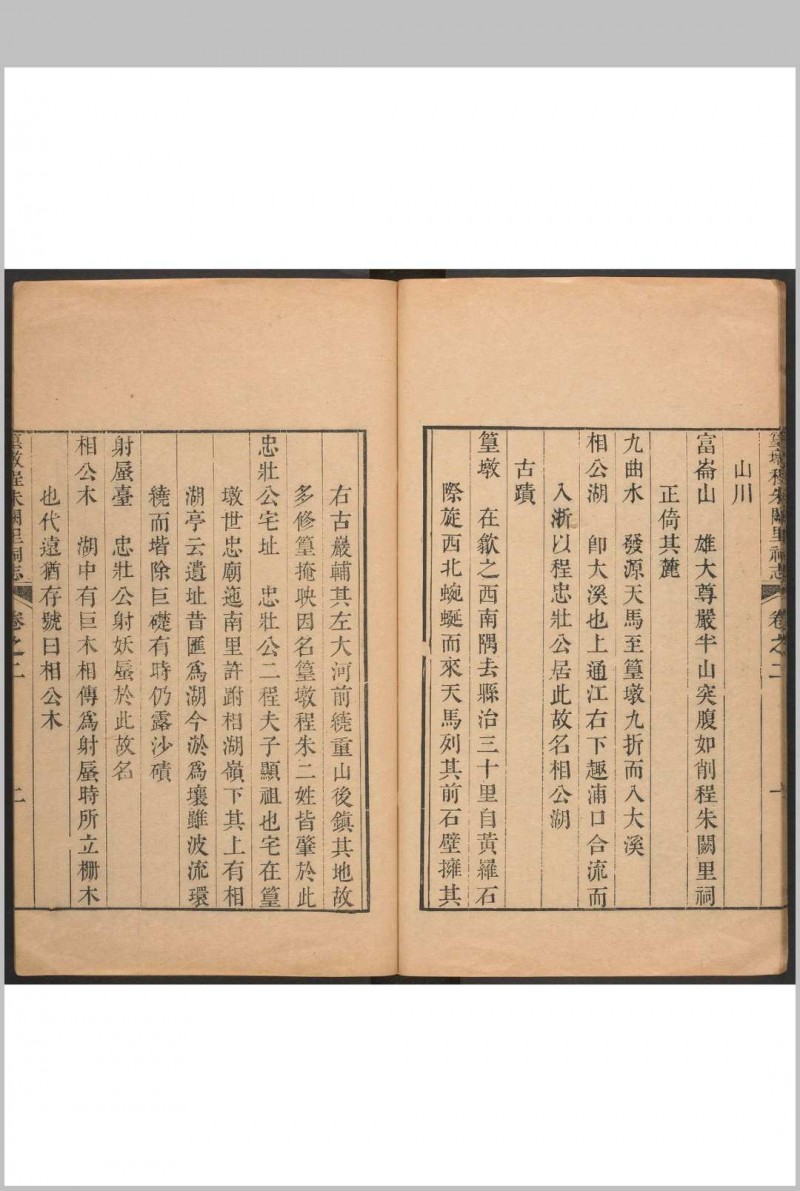 篁墩程朱闕里祠志 卷之二 一
山川
富崙山 雄大尊嚴半山突腹如削程朱闕里祠
正倚其麓
九曲水 發源天馬至篁墩九折而入大溪
相公湖 卽大溪也上通江右下趣浦口合流而
入浙以程忠壯公居此故名相公湖
古蹟
篁墩 在歙之西南隅去縣治三十里自黃羅石
際旋西北蜿蜒而來天馬列其前石壁擁其
右古巖輔其左大河前繞重山後鎮其地故
多修篁掩映因名篁墩程朱二姓皆肇於此
忠壯公宅址 忠壯公二程夫子顯祖也宅在篁
墩世忠廟迤南里許跗相湖嶺下其上有相
湖亭云遺址昔匯爲湖今淤爲壤雖波流環
繞而堦除巨礎有時仍露沙磧
射蜃臺 忠壯公射妖蜃於此故名
相公木 湖中有巨木相傳爲射蜃時所立柵木
也代遠猶存號曰相公木
篁墩程朱闕里祠志 卷之二 二